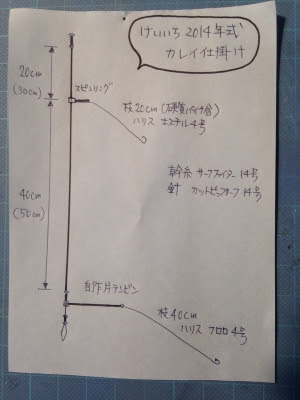 けいいち2014年式
カレイ仕掛け
20cm
(30cm)
スピンリング
枝20cm(硬質パイプ含)
ハリス エステル4号
幹糸 サーフファイター 14号
針 カットビッフサーフ 14号
40cm
(50cm)
自作片テンビン
枝40cm
ハリス フロロ4号